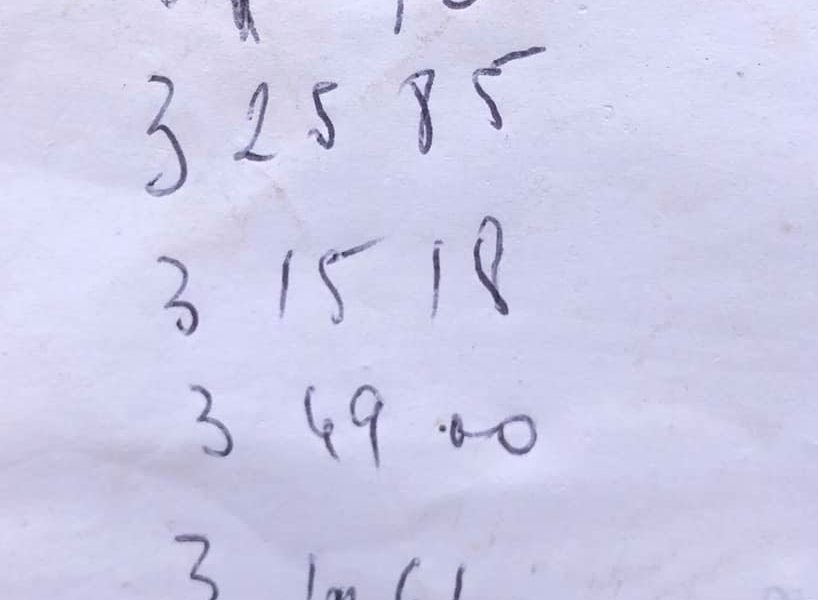 3 25 85
3 15 18
3 49 00
3